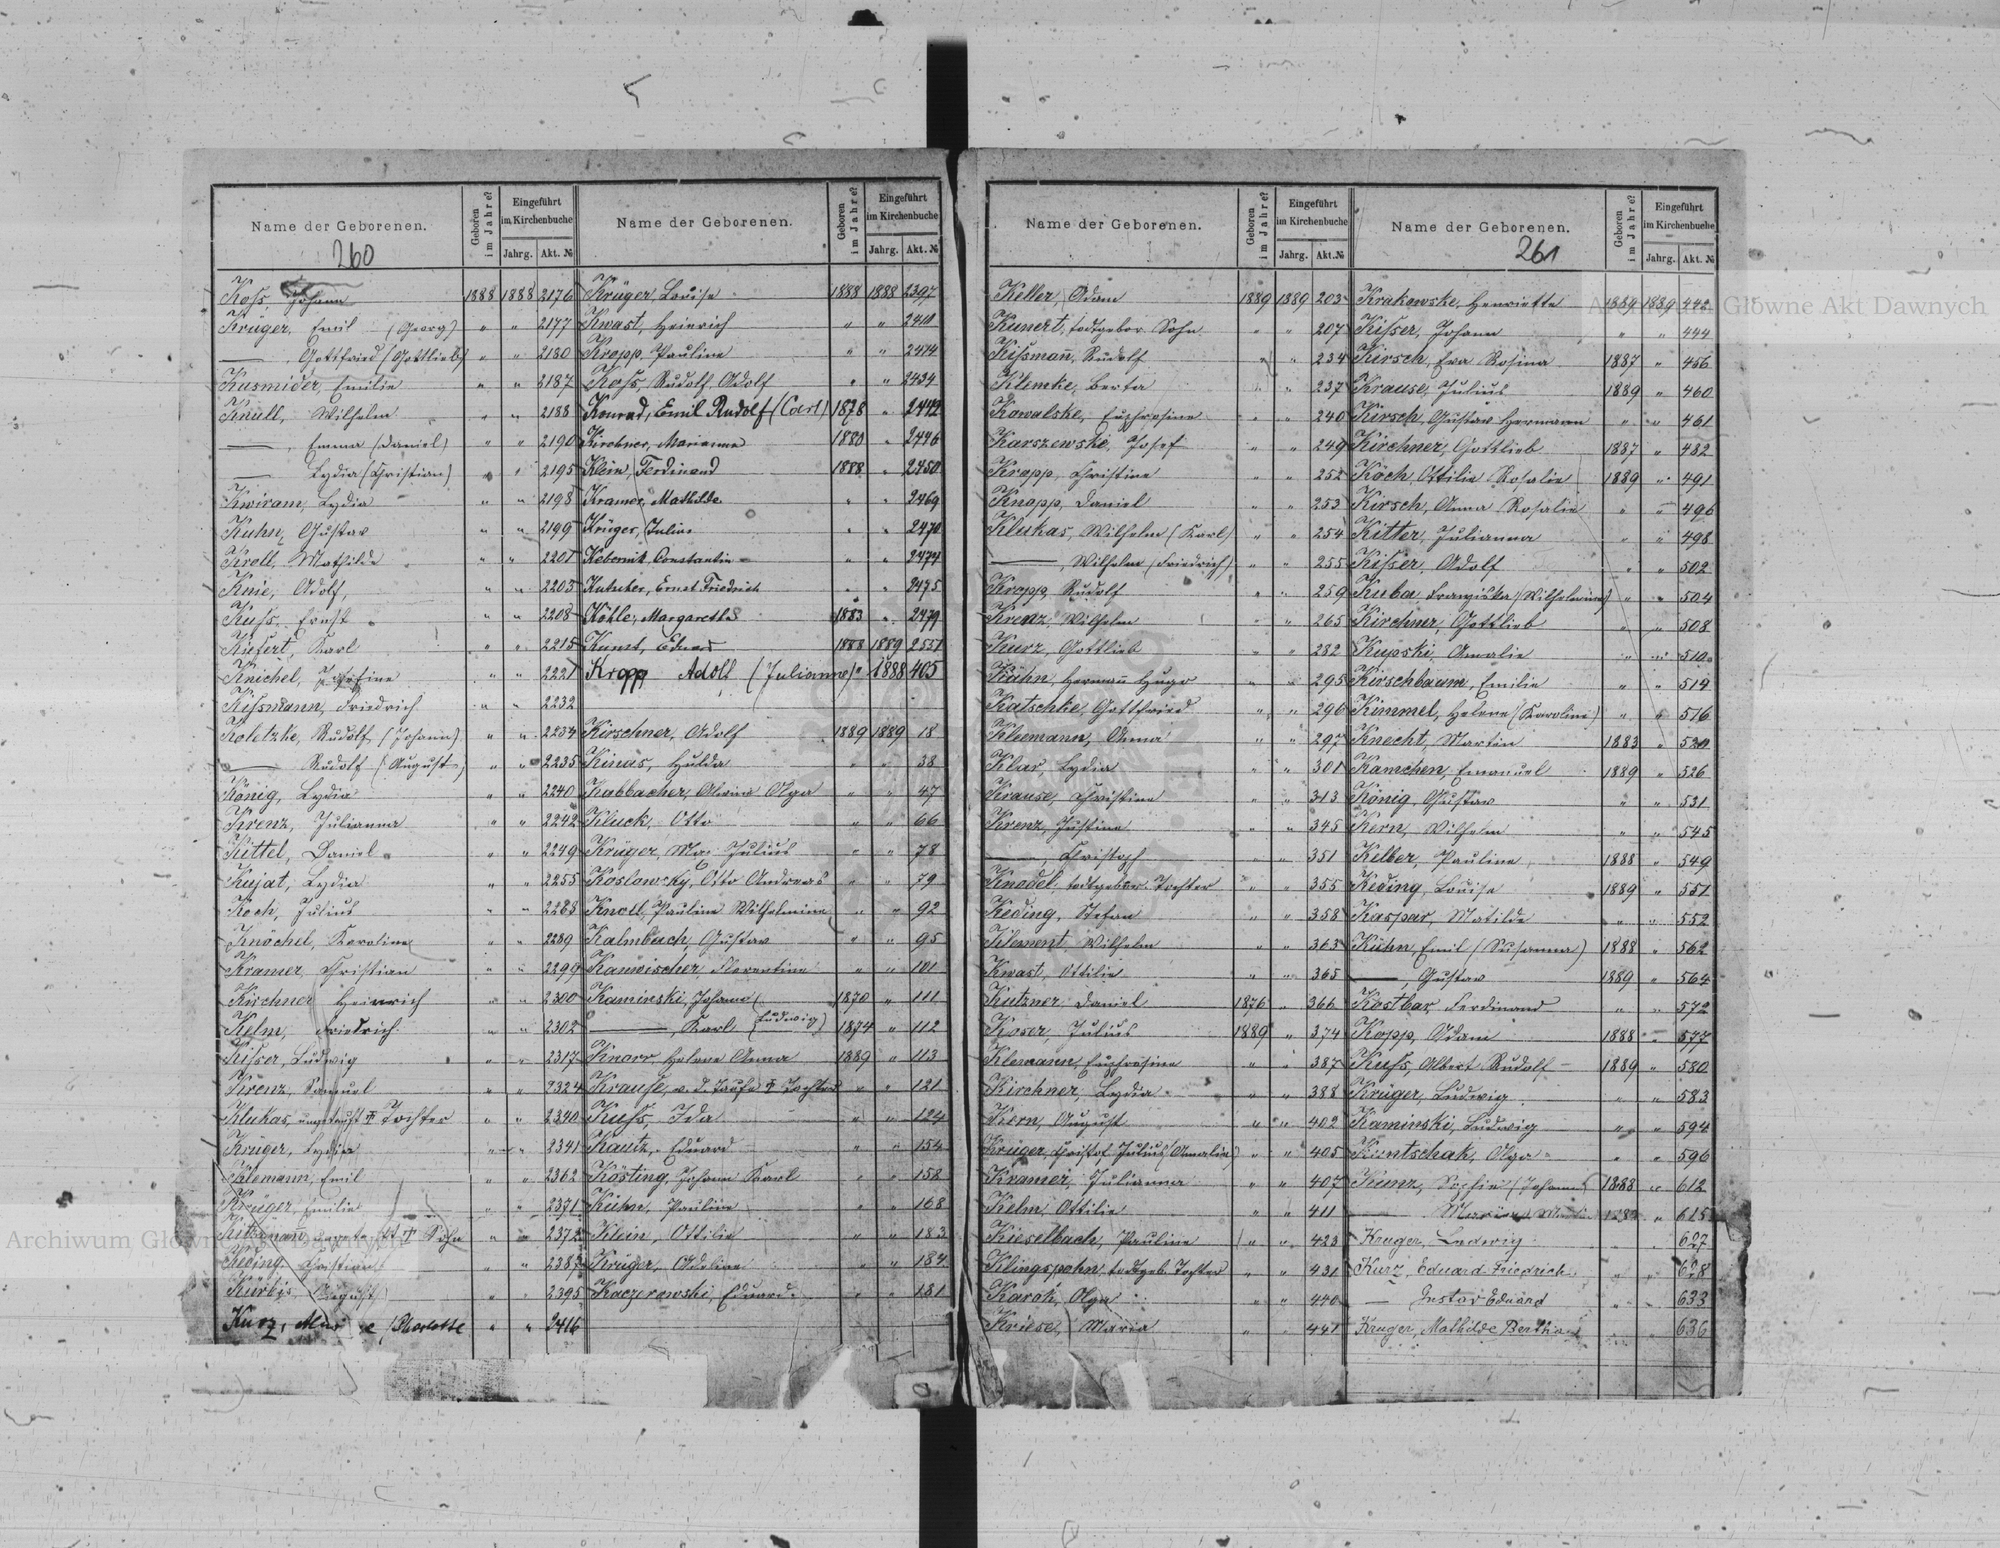 Name der Geborenen. Geboren im Jahre? Eingeführt im Kirchenbuche Jahrg. Akt. №
260
Koss, Johann 1888 1888 2176
Krüger, Emil (Georg) " " 2177
—— , Gottfried (Gottlieb) " " 2180
Kusmider, Emilie " " 2187
Knull, Wilhelm " " 2188
—— , Emma (Daniel) " " 2190
—— Lydia (Christian) " " 2195
Kwiram, Lydia " " 2198
Kuhn, Gustav " " 2199
Kroll, Mathilde " " 2201
Knie, Adolf, " " 2203
Kuss, Ernst " " 2208
Kiefert, Karl " " 2215
Knichel, " " 2221
Kissmann, Friedrich " " 2232
Koletzke, Rudolf (Johann) " " 2234
—— Rudolf (August) " " 2235
König, Lydia " " 2240
Krenz, Julianna " " 2242
Kittel, Daniel " " 2249
Kujat, Lydia " " 2255
Koch, Julius " " 2288
Knöchel, Karoline " " 2289
Kramer, Christian " " 2299
Kirchner, Heinrich " " 2300
Kelm, Friedrich " " 2302
Kisser, Ludwig " " 2317
Krenz, Samuel " " 2324
Klukas, ungetauft Tochter " " 2340
Krüger, Lydia " " 2341
Klemann, Emil " " 2362
Krüger, Emilie " " 2371
Sohn " " 2372
Keding, Christian " " 2387
Kürbis, August " " 2395
Kurz, " " 2416
Name der Geborenen. Geboren im Jahre? Eingeführt im Kirchenbuche Jahrg. Akt. №
Krüger, Louise 1888 1888 2397
Kwast, Heinrich " " 2410
Kropp, Pauline " " 2414
Koss, Rudolf Adolf " " 2434
Konrad, Emil Rudolf (Carl) 1878 " 2442
Kirchner, Marianna 1880 " 2446
Klein, Ferdinand 1888 " 2450
Kramer, Mathilde " " 2469
Krüger, Julius " " 2470
Kebernik, Constantin " " 2474
Kutscher, Ernst Friedrich " " 2475
Köhle, Margarethe 1883 " 2479
Kunst, Eduard 1888 1889 2551
Kropp Adolf (Julianne) " 1888 405
Kirschner, Adolf 1889 1889 18
Kinas, Hulda " " 38
Kabbacher, Alwine Olga " " 47
Kluck, Otto " " 66
Krüger, Julius " " 78
Koslowsky, Otto Andreas " " 79
Knoll, Pauline Wilhelmine " " 92
Kalmbach, Gustav " " 95
Kanwischer Florentine " " 101
Kaminski, Johann ( 1870 " 111
—— , Karl (Ludwig) 1874 " 112
Knorr, Helene Anna 1889 " 113
Krause, v. d. Taufe Tochter " " 121
Kuss, Ida " " 124
Kautz, Eduard " " 154
Kösting, Johann Karl " " 158
Kühn, Pauline " " 168
Klein, Ottilie " " 183
Krüger, Adeline " " 184
Kaczorowski, Eduard " " 181
Name der Geborenen. Geboren im Jahre? Eingeführt im Kirchenbuche Jahrg. Akt.№
Keller, Adam 1889 1889 203
Kunert, todtgebor. Sohn " " 207
Kissmann, Rudolf " " 234
Klemke, Berta " " 237
Kowalske, Euphrosine " " 240
Karszewske, Josef " " 249
Kropp, Christine " " 252
Knopp, Daniel " " 253
Klukas, Wilhelm (Karl) " " 254
—— , Wilhelm (Friedrich) " " 255
Kropp, Rudolf " " 259
Krenz, Wilhelm " " 265
Kurz, Gottlieb " " 282
Kühn, Hermann Hugo " " 295
Katschke, Gottfried " " 296
Kleemann, Anna " " 297
Klar, Lydia " " 301
Krause, Christine " " 313
Krenz, Justine " " 345
—— , Christoph " " 351
Knodel, todtgebor. Tochter " " 355
Keding, Stefan " " 358
Klement Wilhelm " " 363
Kwast, Ottilie " " 365
Kutzner Daniel 1876 " 366
Koser, Julius 1889 " 374
Klemann, Euphrosine " " 387
Kirchner, Lydia " " 388
Kern, August " " 402
Krüger, Christof Julius (Amalie) " " 405
Kramer, Julianna " " 407
Kelm Ottilie " " 411
Kieselbach, Pauline " " 423
Klingspohn todtgeb. Tochter " " 431
Karoh, Olga " " 440
Kriese, Maria " " 441
Name der Geborenen. Geboren im Jahre? Eingeführt im Kirchenbuche Jahrg. Akt. №
261
Krakowske, Henriette 1889 1889 442
Kisser, Johann " " 444
Kirsch, Eva Rosina 1887 " 456
Krause, Julius 1889 " 460
Kirsch, Gustav Hermann " " 461
Kirchner, Gottlieb 1887 " 482
Koch, Ottilie Rosalie 1889 " 491
Kirsch, Anna Rosalie " " 496
Kitter, Julianna " " 498
Kisser, Adolf " " 502
Kuba, Franziska (Wilhelmine) " " 504
Kirchner, Gottlieb " " 508
Kujoski, Amalie " " 510
Kirschbaum, Emilie " " 514
Kimmel, Helene (Karoline) " " 516
Knecht, Martin 1883 " 520
Kamchen, Emanuel 1889 " 526
König, Gustav " " 531
Kern, Wilhelm " " 545
Kelber, Pauline 1888 " 549
Keding, Louise 1889 " 551
Kaspar, Matilde " " 552
Kühn, Emil (Susanna) 1888 " 562
—— , Gustav 1889 " 564
Kostbar, Ferdinand " " 572
Kopp, Adam 1888 " 577
Kuss, Albert Rudolf 1889 " 580
Krüger, Ludwig " " 583
Kaminski, Ludwig " " 594
Kuntschak, Olga " " 596
Kunz, Sophie (Johann) 1888 " 612
—— " 615
Kruger, Ludwig " " 627
Kurz, Eduard Friedrich " " 628
— Gustav Eduard " " 633
Kruger, Mathilde Bertha " " 636
Archiwum Główne Akt Dawnych
Archiwum Główne Akt Dawnych